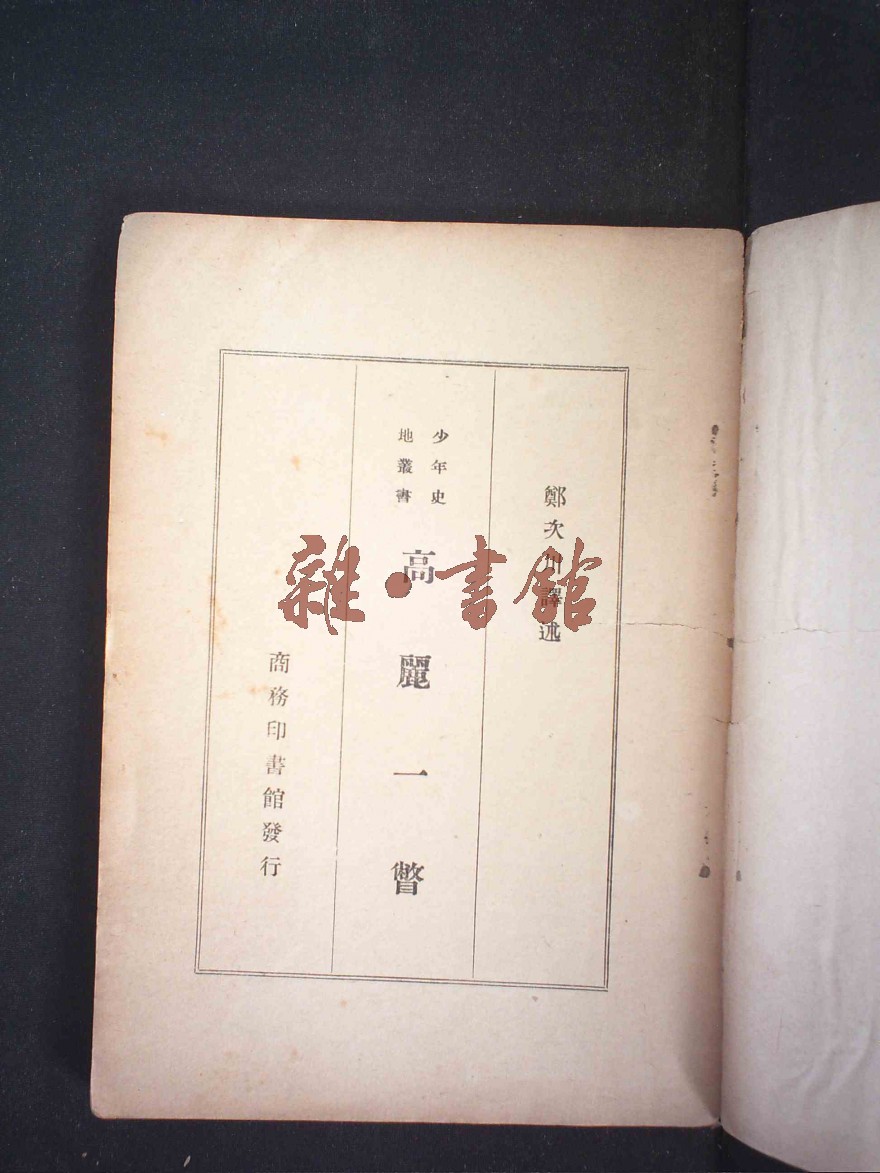 鄭次川譯述
少年史
地叢書
高麗一瞥
商務印書館發行
雜·書館